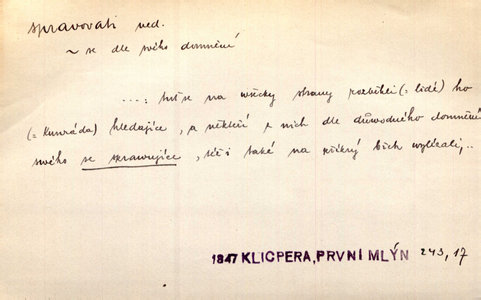 spravovati ned.
~ se dle svého domnění
...: tuť se na wšecky strany rozběhli (= lidé) ho
(= Kunráda) hledajíce, a někteří z nich dle důwodného domnění
swého se sprawujíce, též i také na příkrý břich wylézali,..
1847 KLICPERA, PRVNÍ MLÝN 243, 17